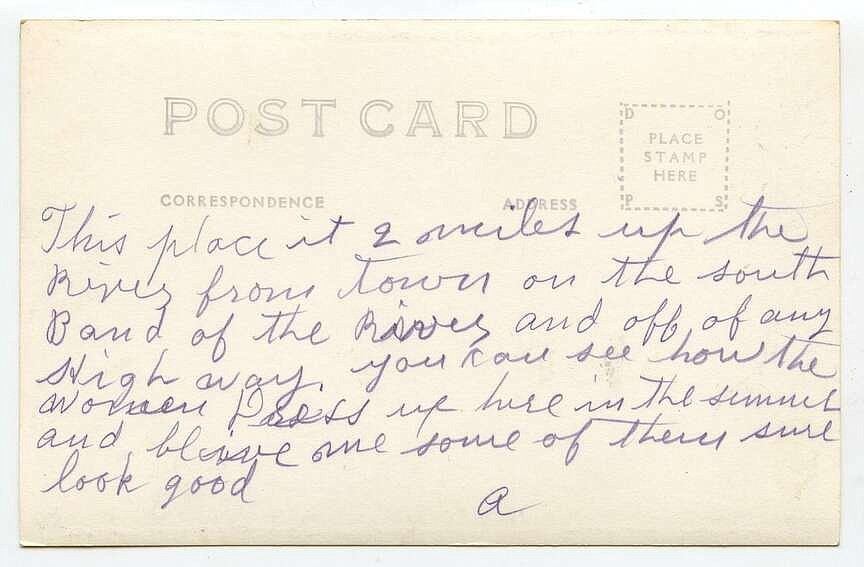 POST CARD
D O
PLACE
STAMP
HERE
P S
CORRESPONDENCE ADDRESS
This place it 2 miles up the
River from town on the south
Band of the River and off of any
High way. you can see how the
women Dress up here in the summer
and bleive me some of them sure
look good
a